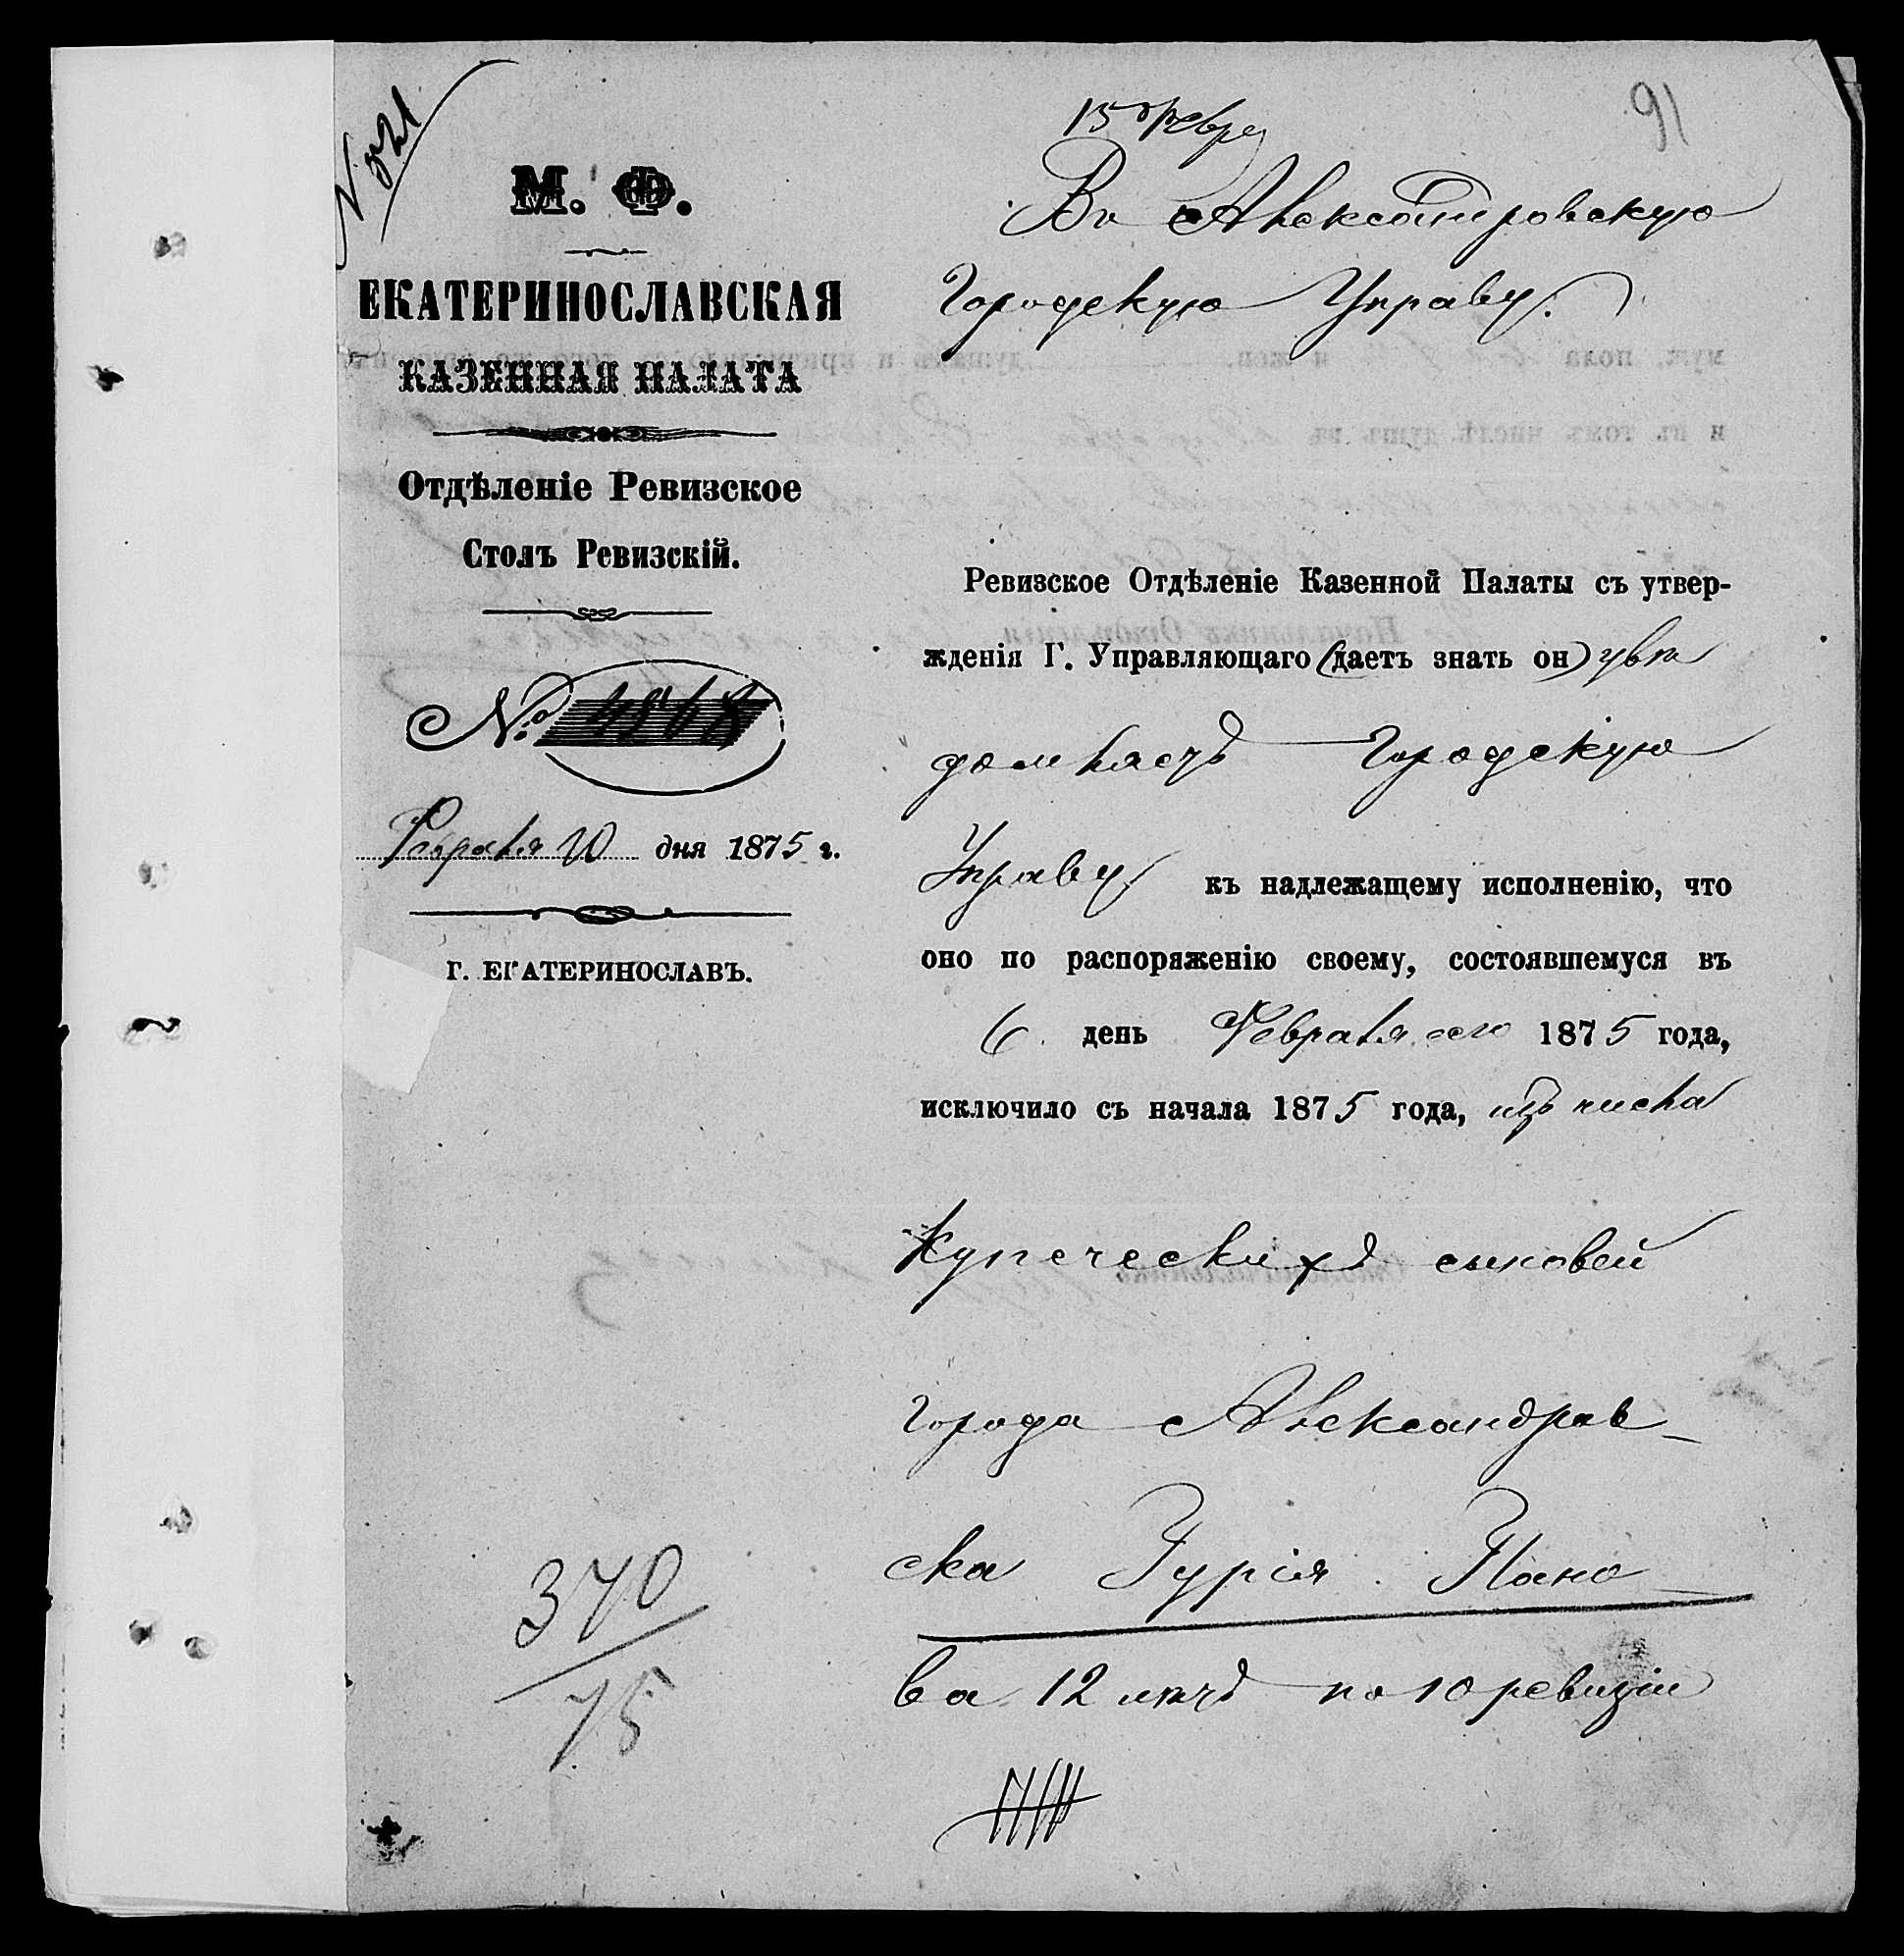 № 821
91
М. Ф.
ЕКАТЕРИНОСЛАВСКАЯ
КАЗЕННАЯ ПАЛАТА
Отдѣленіе Ревизское
Столъ Ревизскій.
№ 4868
Февраля 10 дня 1875 г.
Г. ЕКАТЕРИНОСЛАВЪ.
370
75
15 Февр
Въ Александровскую
Городскую Управу.
Ревизское Отдѣленіе Казенной Палаты съ утвер-
жденія Г. Управляющаго (даетъ знать он) увѣ
домляетъ Городскую
Управу къ надлежащему исполненію, что
оно по распоряженію своему, состоявшемуся въ
6 день Февраля сего 1875 года,
исключило съ начала 1875 года, изъ числа
Купеческихъ сыновей
города Александров-
ска Гурія Пано
ва 12 лѣтъ по 10 ревизіи